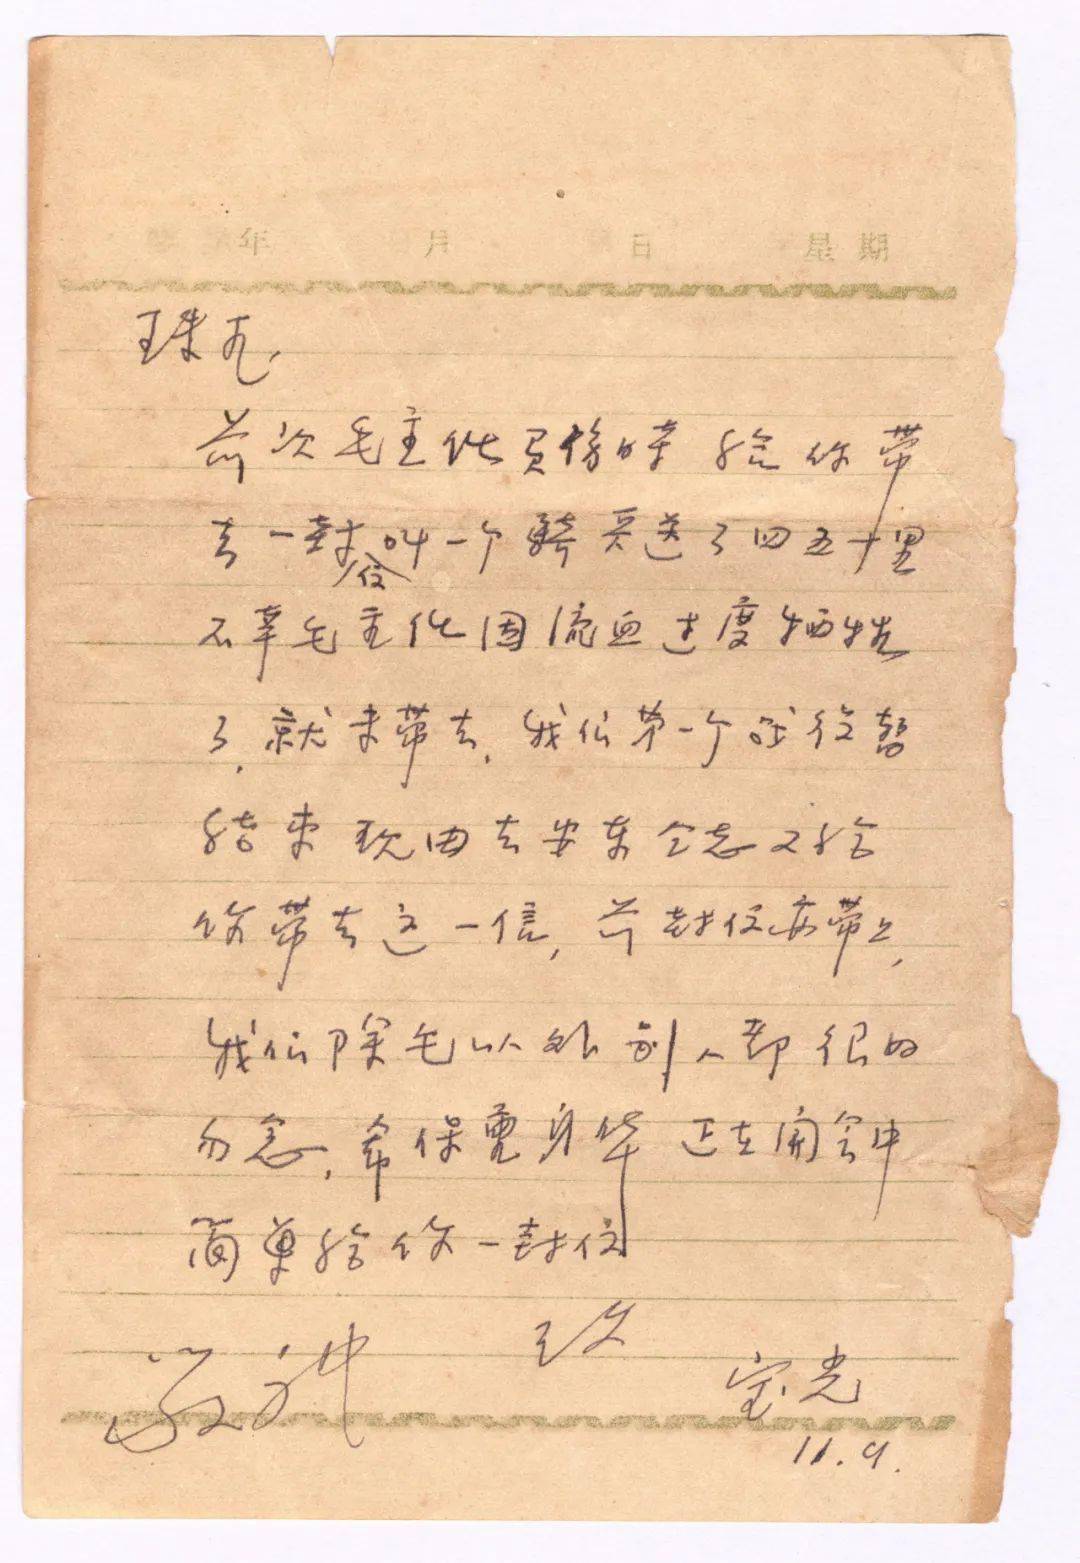 年 月 日 星期
珠凡，
前次毛主任负伤时 给你带
去一封信叫一个骑兵送了四五十里
不幸毛主任因流血过度牺牲
了，就未带去，我们第一个战役暂
结束 现由去安东 同志又给
你带去这一信，前封信亦带上，
我们除毛以外别人都很好
勿念，希保重身体 正在开会中
简单给你一封信
致
敬礼
宝光
11.9.